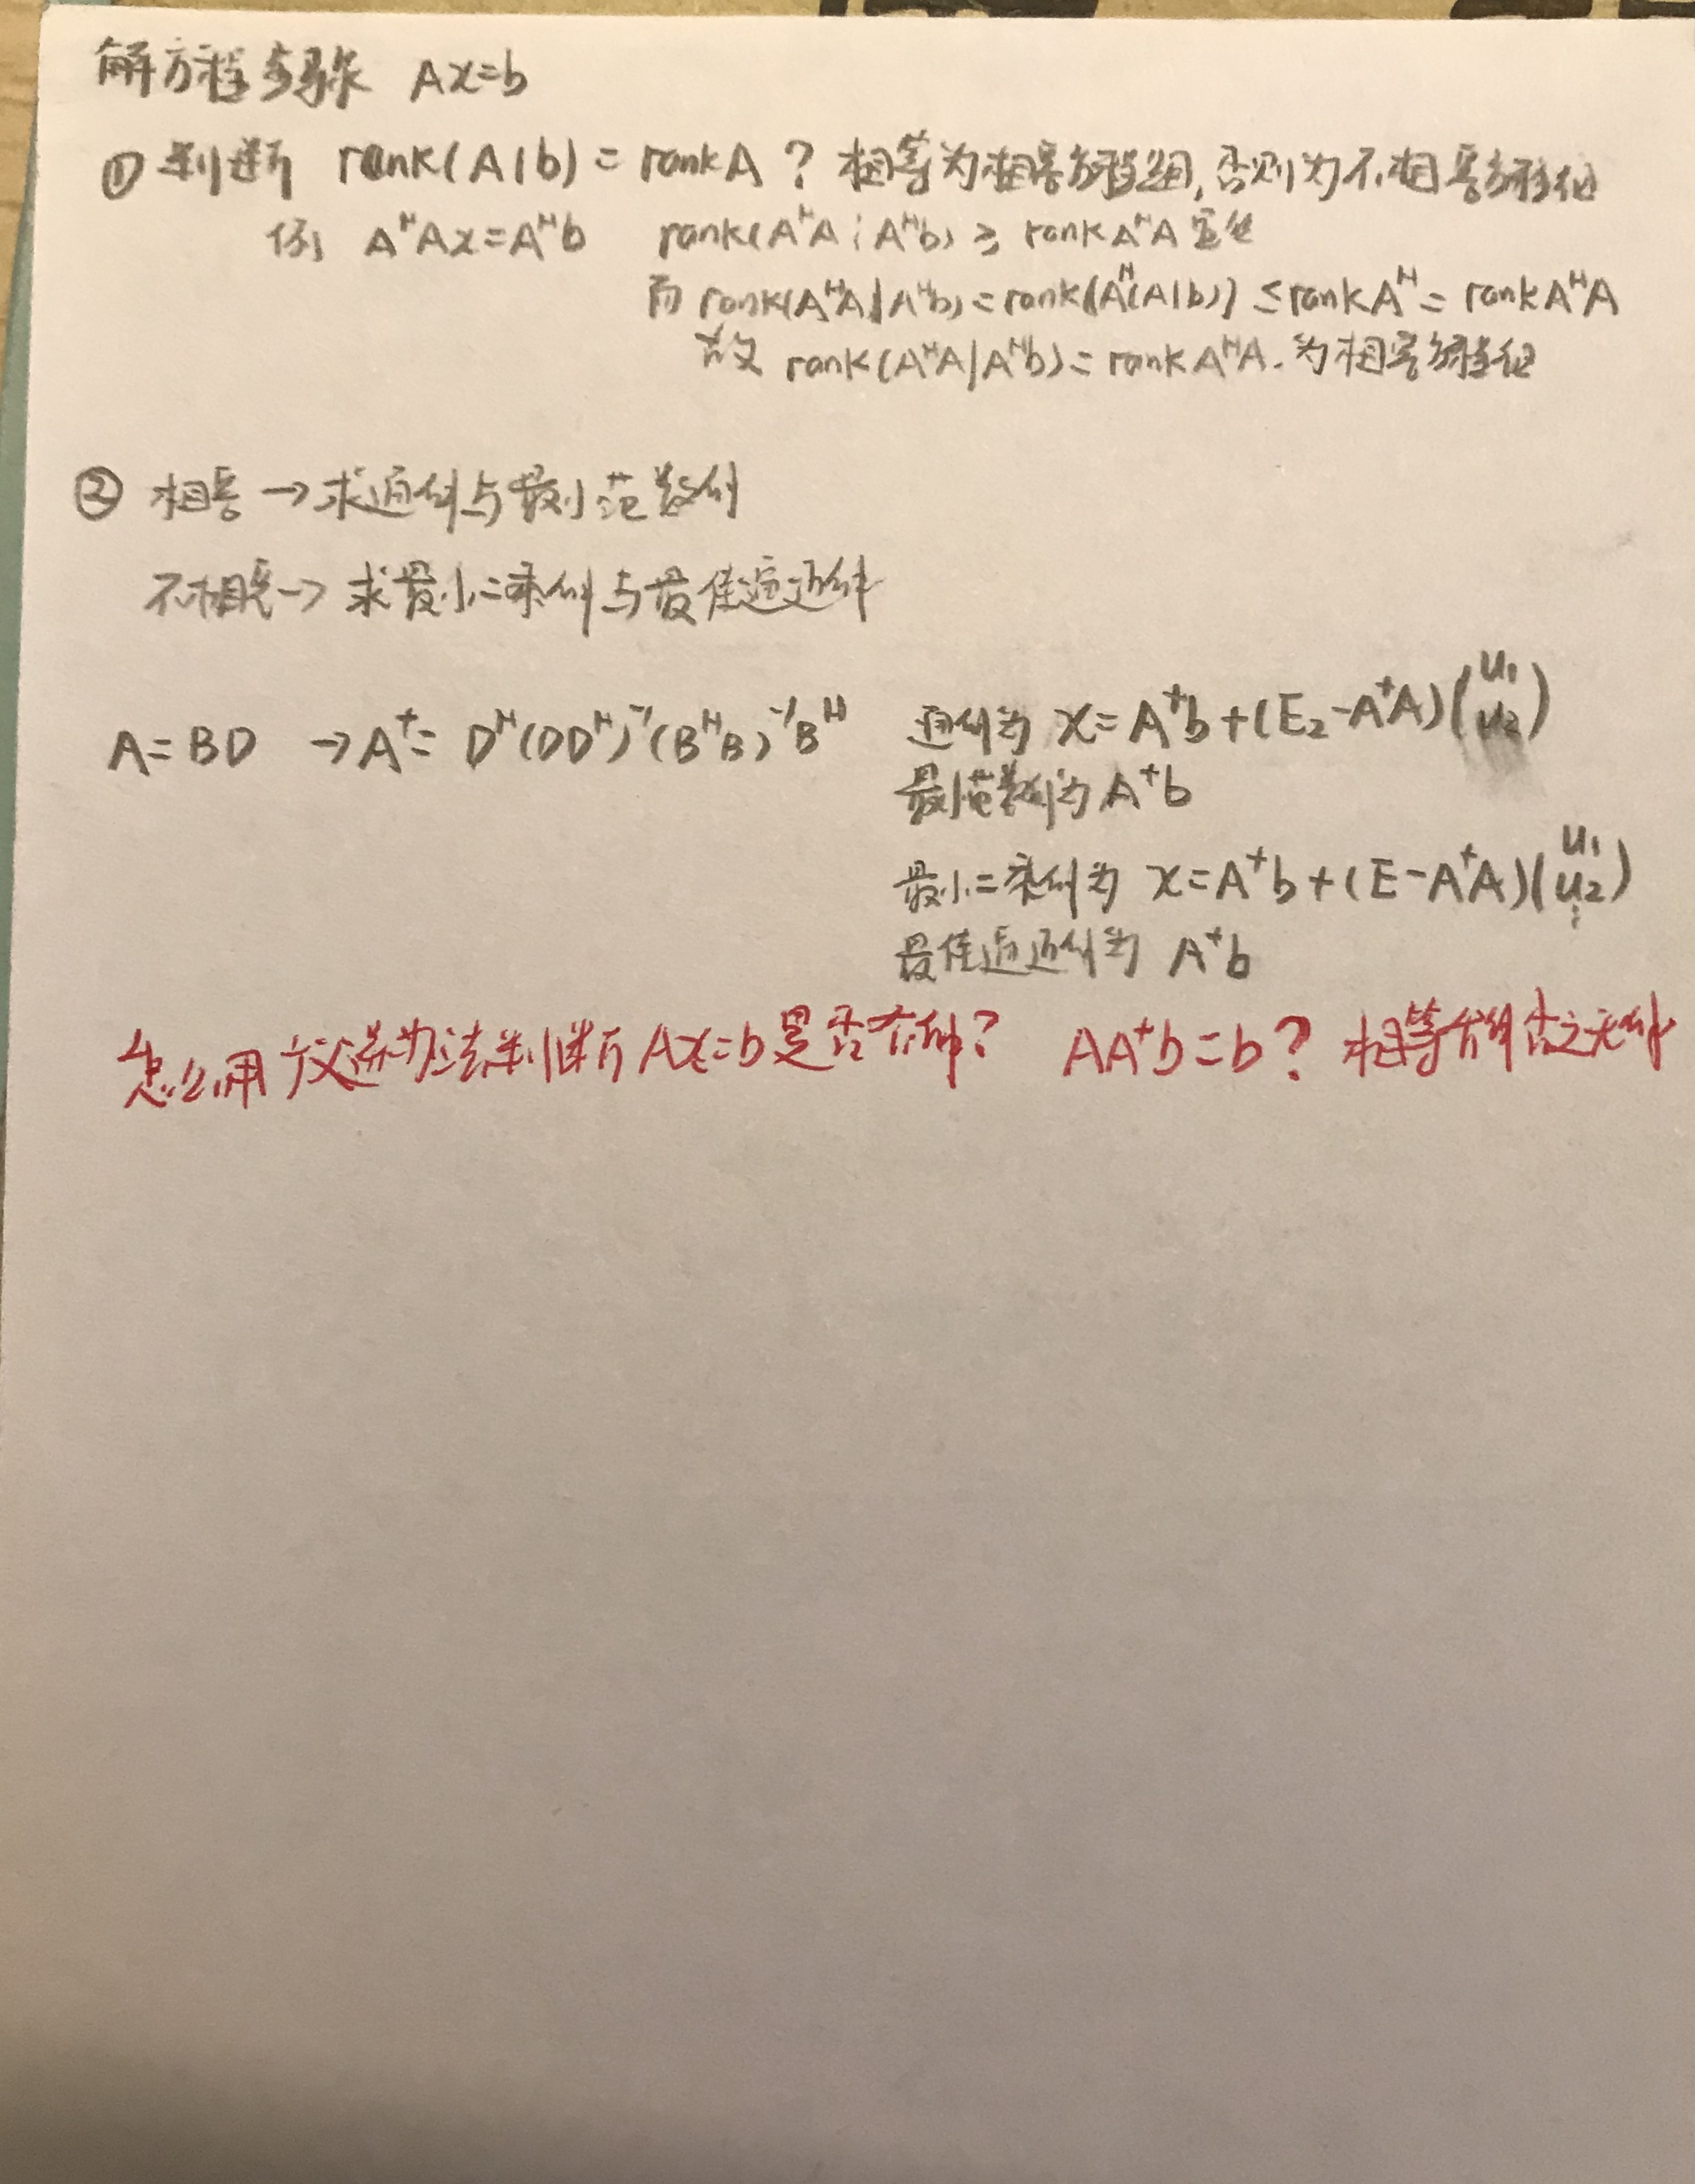 解方程步骤 Ax=b
① 判断 rank(A|b)=rankA？相等为相容方程组,否则为不相容方程组
例 AᴴAx=Aᴴb rank(AᴴA¦Aᴴb)≥rankAᴴA 显然
而 rank(AᴴA|Aᴴb)=rank(Aᴴ(A|b))≤rankAᴴ=rankAᴴA
故 rank(AᴴA|Aᴴb)=rankAᴴA.为相容方程组
② 相容→求通解与最小范数解
不相容→求最小二乘解与最佳逼近解
A=BD →A⁺=Dᴴ(DDᴴ)⁻¹(BᴴB)⁻¹Bᴴ 通解为 x=A⁺b+(E₂-A⁺A)(u₁ u₂)
最小范数解为 A⁺b
最小二乘解为 x=A⁺b+(E-A⁺A)(u₁ u₂ ⋮)
最佳逼近解为 A⁺b
怎么用广义逆办法判断Ax=b是否有解？ AA⁺b=b？相等有解 否之无解